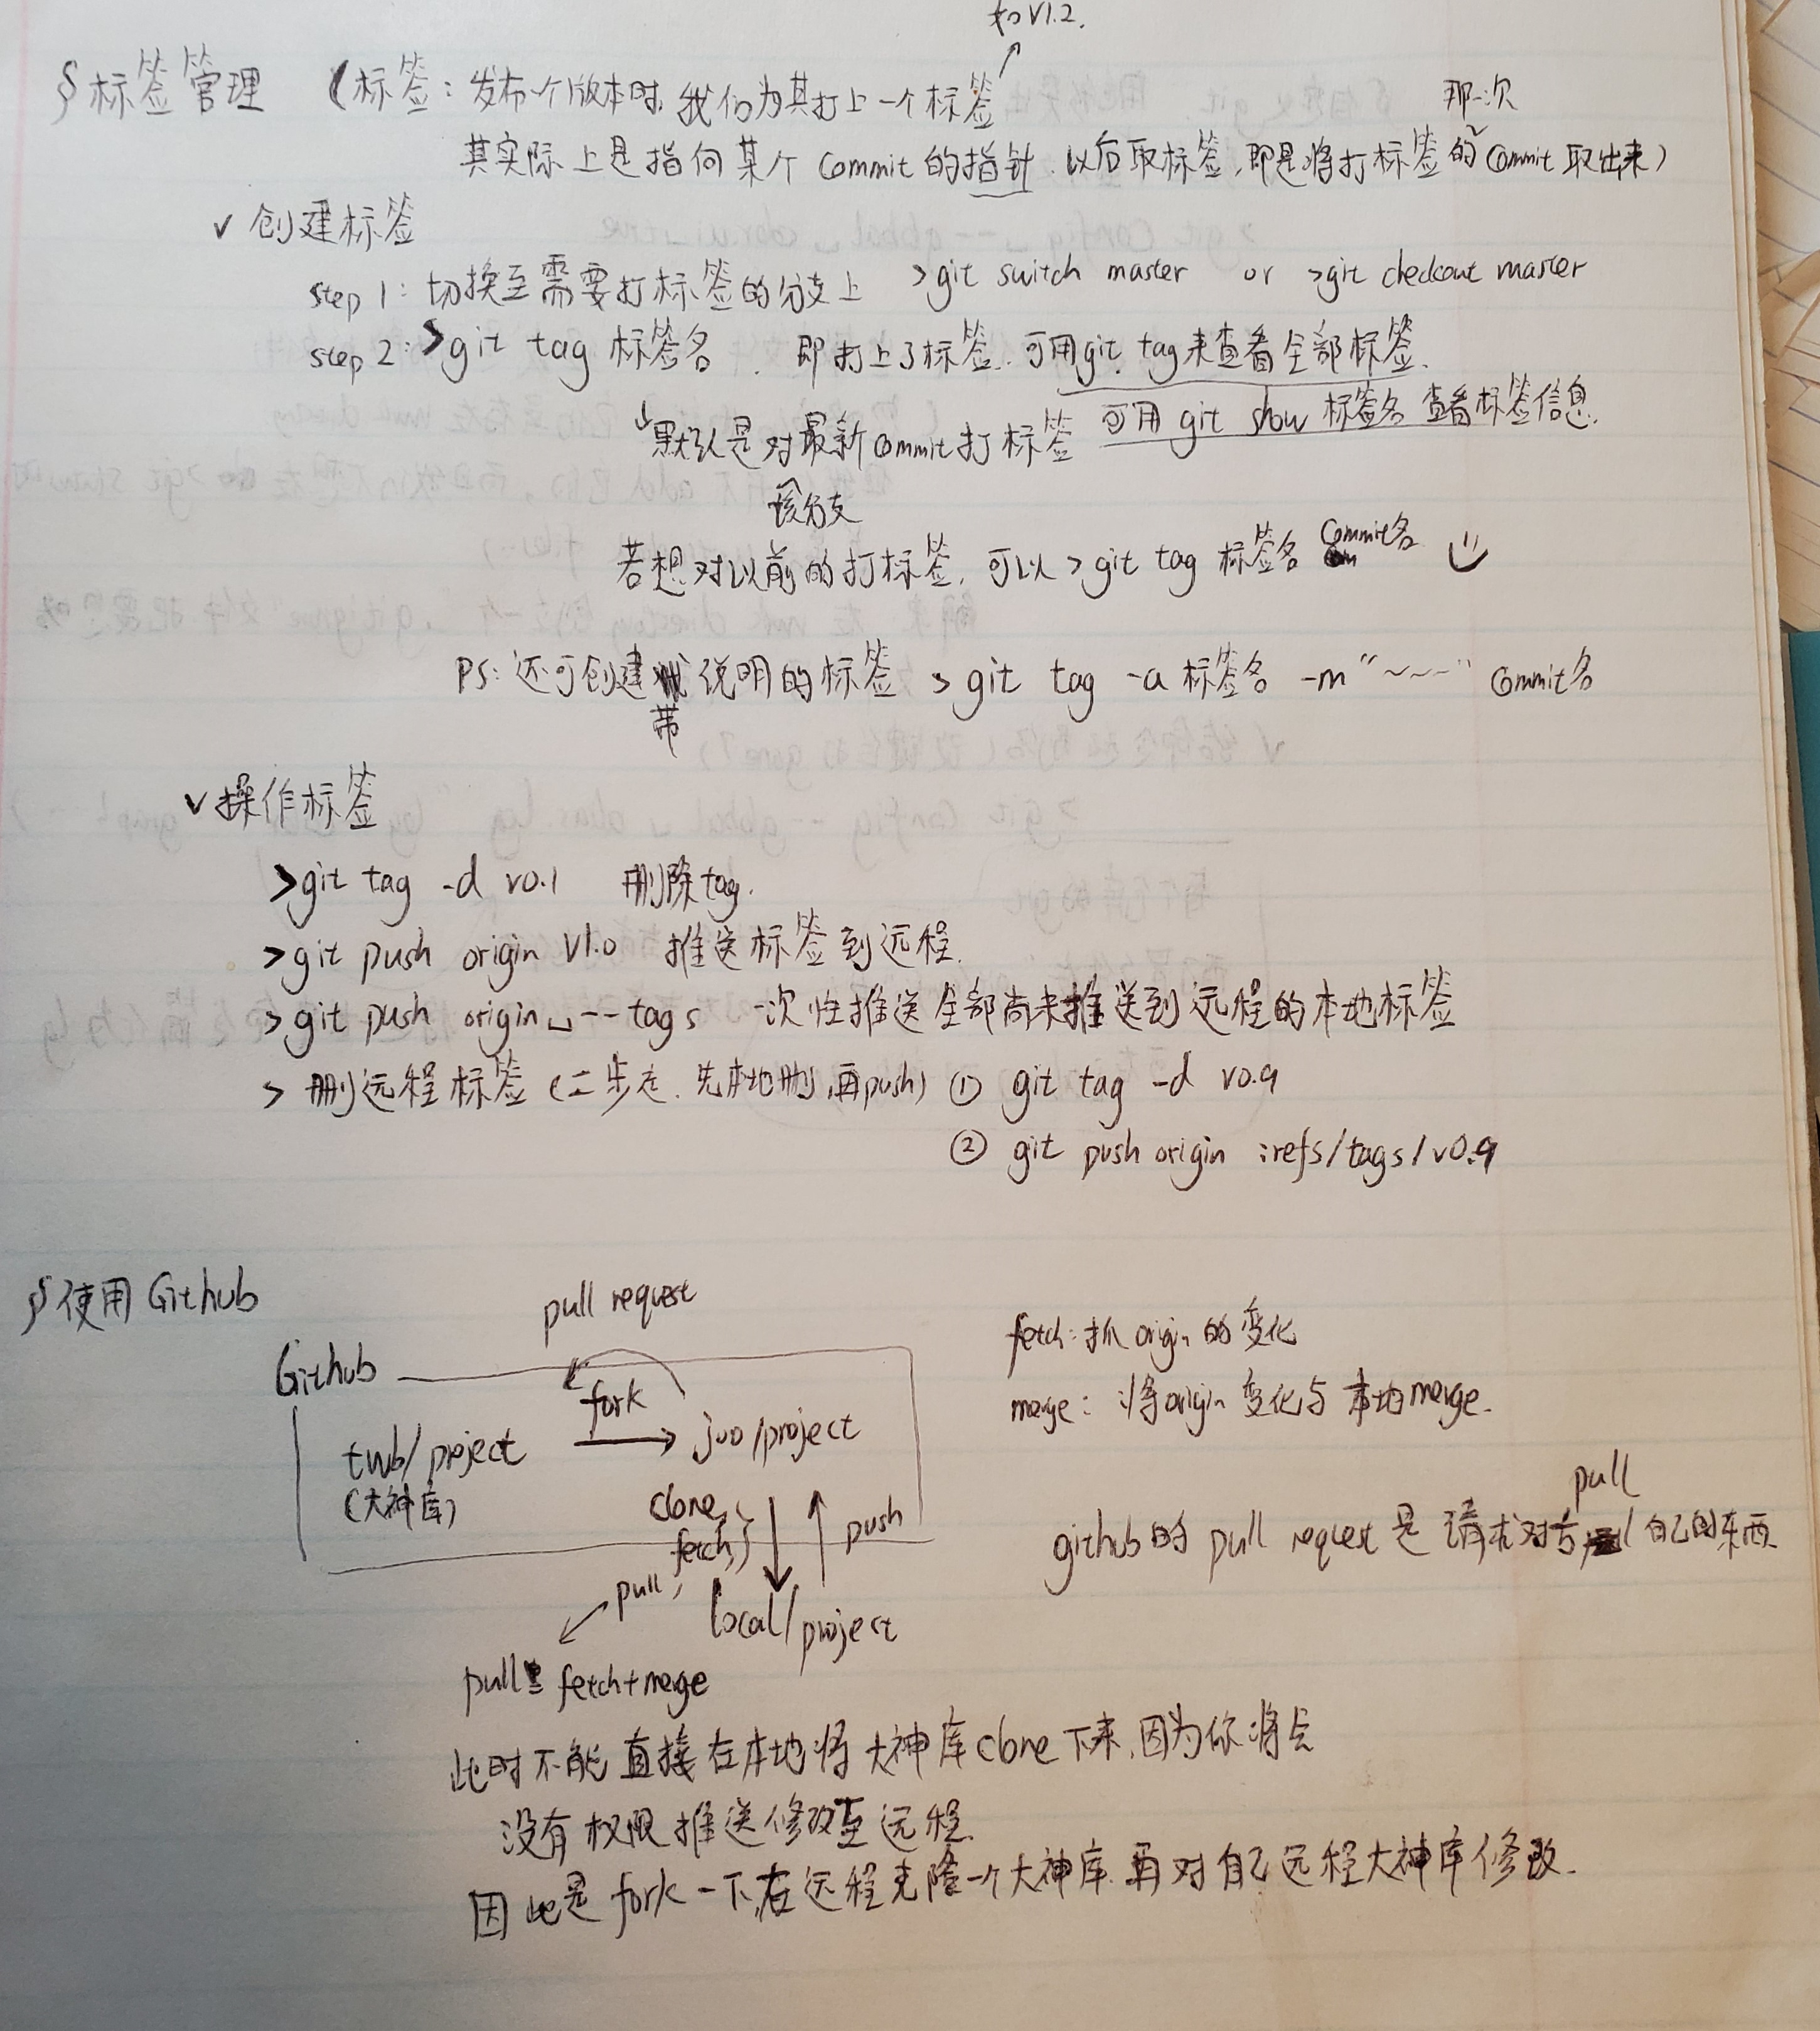 如V1.2.
§标签管理 (标签:发布一个版本时,我们为其打上一个标签
那一次
其实际上是指向某个commit的指针.以后取标签,即是将打标签的commit取出来)
✓ 创建标签
step 1: 切换至需要打标签的分支上 >git switch master or >git checkout master
step 2: >git tag 标签名. 即打上了标签.可用git tag来查看全部标签.
↓默认是对最新commit打标签 可用 git show 标签名 查看标签信息.
该分支
若想对以前的打标签,可以 >git tag 标签名 commit名
PS:还可创建 说明的标签 >git tag -a 标签名 -m "~~~~" commit名
带
✓操作标签
>git tag -d v0.1 删除tag.
>git push origin V1.0 推送标签到远程.
>git push origin␣--tags 一次性推送全部尚未推送到远程的本地标签
> 删远程标签(二步走.先本地删,再push) ① git tag -d v0.9
② git push origin :refs/tags/v0.9
§使用Github
pull request
Github
fork
twb/project → juo/project
(大神库)
clone,
fetch,
pull,
push
local/project
pull= fetch+merge
fetch:抓origin的变化
merge: 将origin变化与本地merge.
pull
github的pull request是请求对方 自己的东西
此时不能直接在本地将大神库clone下来,因为你将会
没有权限推送修改至远程.
因此是fork一下,在远程克隆一个大神库.再对自己远程大神库修改.